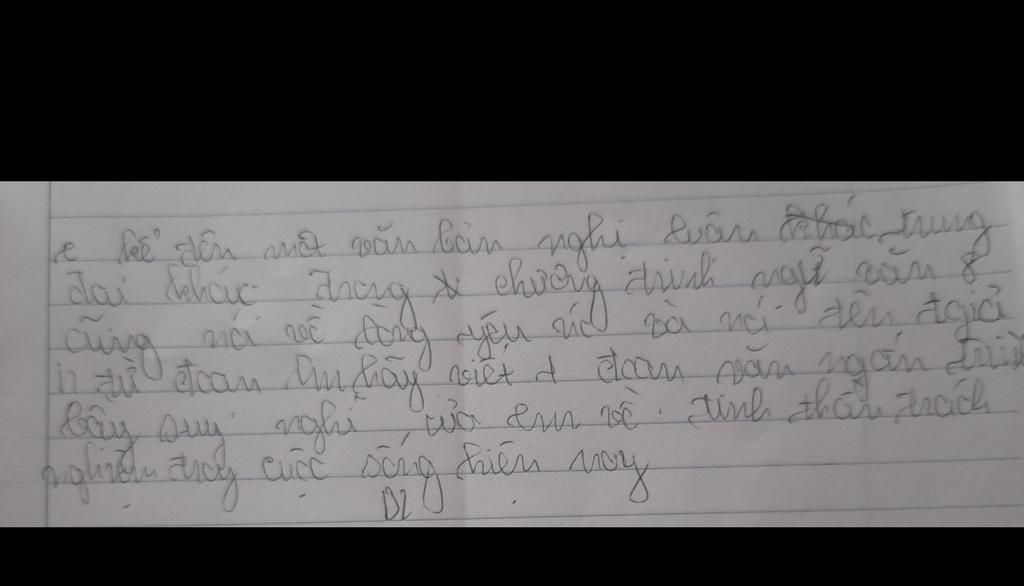 e kể tên một văn bản nghị luận trung
đại khác trong chương trình ngữ văn 8
cũng nói về lòng yêu nước và nói tên tgiả
từ đoạn hãy viết 1 đoạn văn ngắn trình
bày suy nghĩ của em về tinh thần trách
nghiệm trong cuộc sống hiện nay